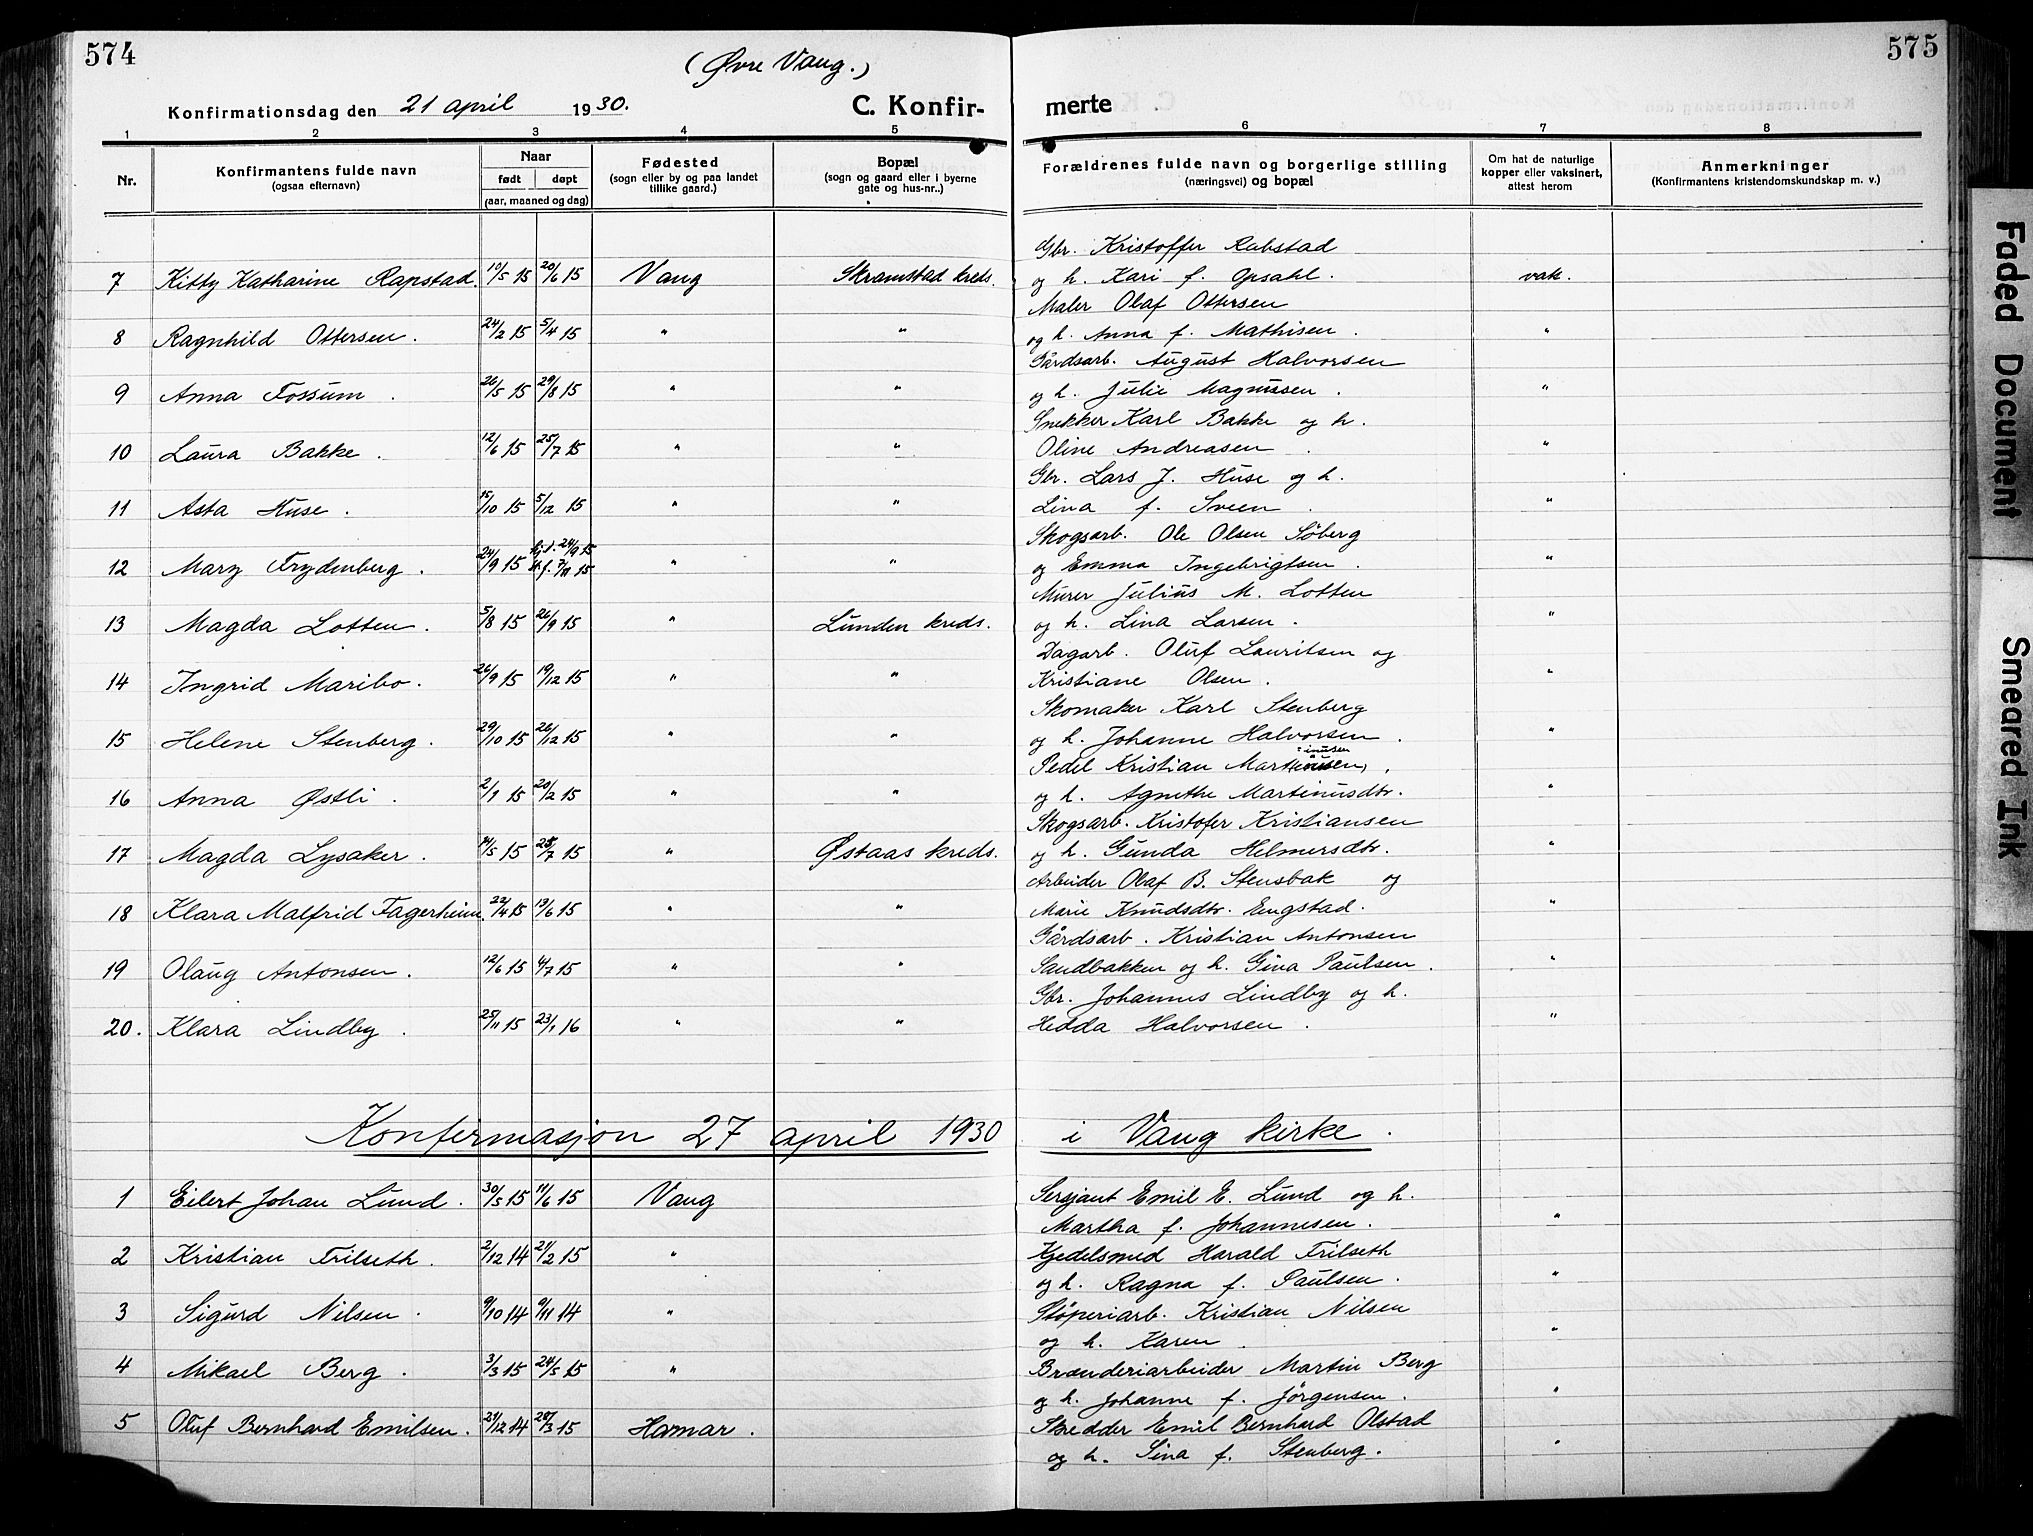 574
575
(Øvre Vang.)
Konfirmationsdag den 21 april 1930.
C. Konfirmerte
1 2 3 4 5 6 7 8
Nr.
Konfirmantens fulde navn (ogsaa efternavn)
Naar
født døpt
(aar, maaned og dag)
Fødested
(sogn eller by og paa landet tillike gaard.)
Bopæl
(sogn og gaard eller i byerne gate og hus-nr..)
Forældrenes fulde navn og borgerlige stilling
(næringsvei) og bopæl
Om hat de naturlige kopper eller vaksinert, attest herom
Anmerkninger
(Konfirmantens kristendomskundskap m. v.)
Gbr. Kristoffer Rabstad
7 Kitty Katharine Rapstad. 10/5 15 20/6 15 Vang Skramstad kreds. og h. Kari f. Opsahl. vak.
Maler Olaf Ottersen
8 Ragnhild Ottersen. 24/2 15 5/4 15 " " og h. Anna f. Mathisen. "
Gårdsarb. August Halvorsen
9 Anna Fossum. 26/5 15 29/8 15 " " og h. Julie Magnussen. "
Snekker Karl Bakke og h.
10 Laura Bakke. 12/6 15 25/7 15 " " Oline Andreasen. "
Gbr. Lars J. Huse og h.
11 Asta Huse. 15/10 15 5/12 15 " " Lina f. Sveen. "
Skogsarb. Ole Olsen Söberg
12 Mary Frydenberg. 24/9 15 hjd. 24/9 15 st.f. 7/11 15 " " og Emma Ingebrigtsen. "
Murer Julius M. Lotten
13 Magda Lotten. 5/8 15 26/9 15 " Lunden kreds. og h. Lina Larsen. "
Dagarb. Oluf Lauritsen og
14 Ingrid Maribo. 26/9 15 19/12 15 " " Kristiane Olsen. "
Skomaker Karl Stenberg
15 Helene Stenberg. 29/10 15 26/12 15 " " og h. Johanne Halvorsen. "
Pedel Kristian Martinusen,
16 Anna Østli. 2/1 15 20/2 15 " " og h. Agnethe Martinusdtr. "
Skogsarb. Kristofer Kristiansen
17 Magda Lysaker. 15 25/7 15 " Østaas kreds. og h. Gunda Helmersdtr. "
Arbeider Olaf B. Stensbak og
18 Klara Malfrid Fagerheim. 22/4 15 13/6 15 " " Marie Knudsdtr. Engstad. "
Gårdsarb. Kristian Antonsen
19 Olaug Antonsen. 12/6 15 4/7 15 " " Sandbakken og h. Gina Paulsen. "
Gbr. Johannes Lindby og h.
20. Klara Lindby. 25/11 15 23/1 16 " " Hedda Halvorsen. "
Konfirmasjon 27 april 1930 i Vang kirke.
1 Eilert Johan Lund. 30/5 15 11/6 15 Vang Sersjant Emil E. Lund og h.
Martha f. Johannesen. "
2 Kristian Frilseth. 2/12 14 21/2 15 " Kjedelsmed Harald Frilseth
og h. Ragna f. Paulsen. "
3 Sigurd Nilsen. 9/10 14 9/11 14 " Stöperiarb. Kristian Nilsen
og h. Karen. "
4 Mikael Berg. 3/3 15 24/5 15 " Brænderiarbeider Martin Berg
og h. Johanne f. Jörgensen. "
5 Oluf Bernhard Emilsen. 21/12 14 28/3 15 Hamar. Skredder Emil Bernhard Olstad
og h. Sina f. Stenberg. "
Faded Document
Smeared Ink